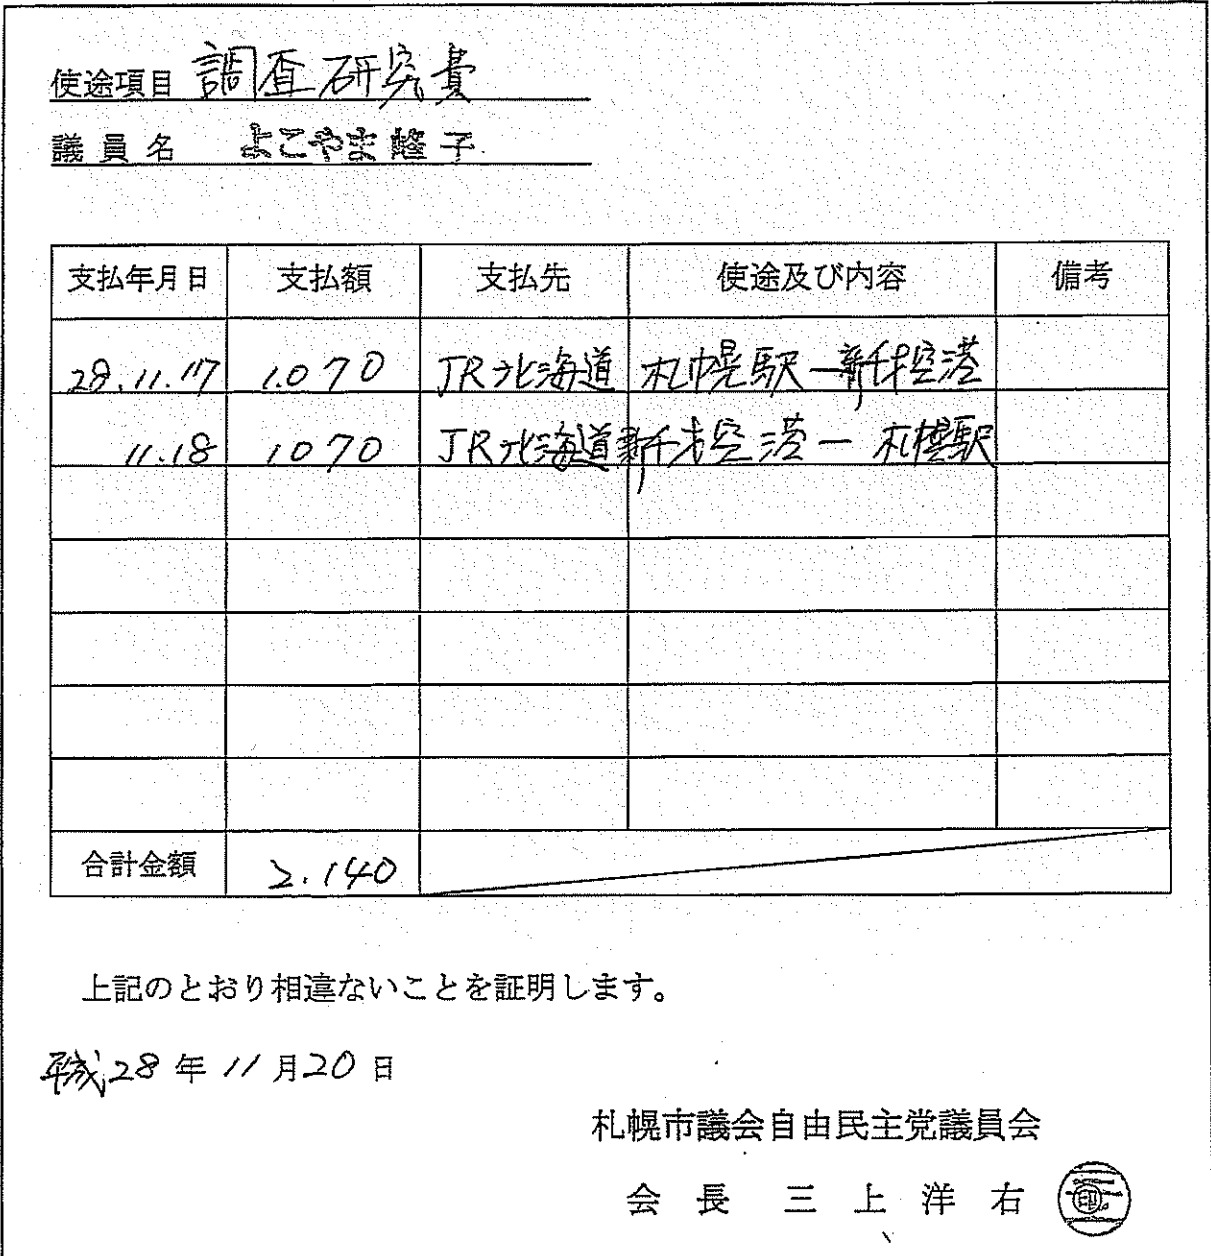 使途項目 調査研究費
議員名 よこやま峰子
支払年月日 支払額 支払先 使途及び内容 備考
28.11.17 1.070 JR北海道 札幌駅ー新千才空港
11.18 1070 JR北海道 新千才空港ー札幌駅
合計金額 2.140
上記のとおり相違ないことを証明します。
平成28年11月20日
札幌市議会自由民主党議員会
会長 三上洋右 印